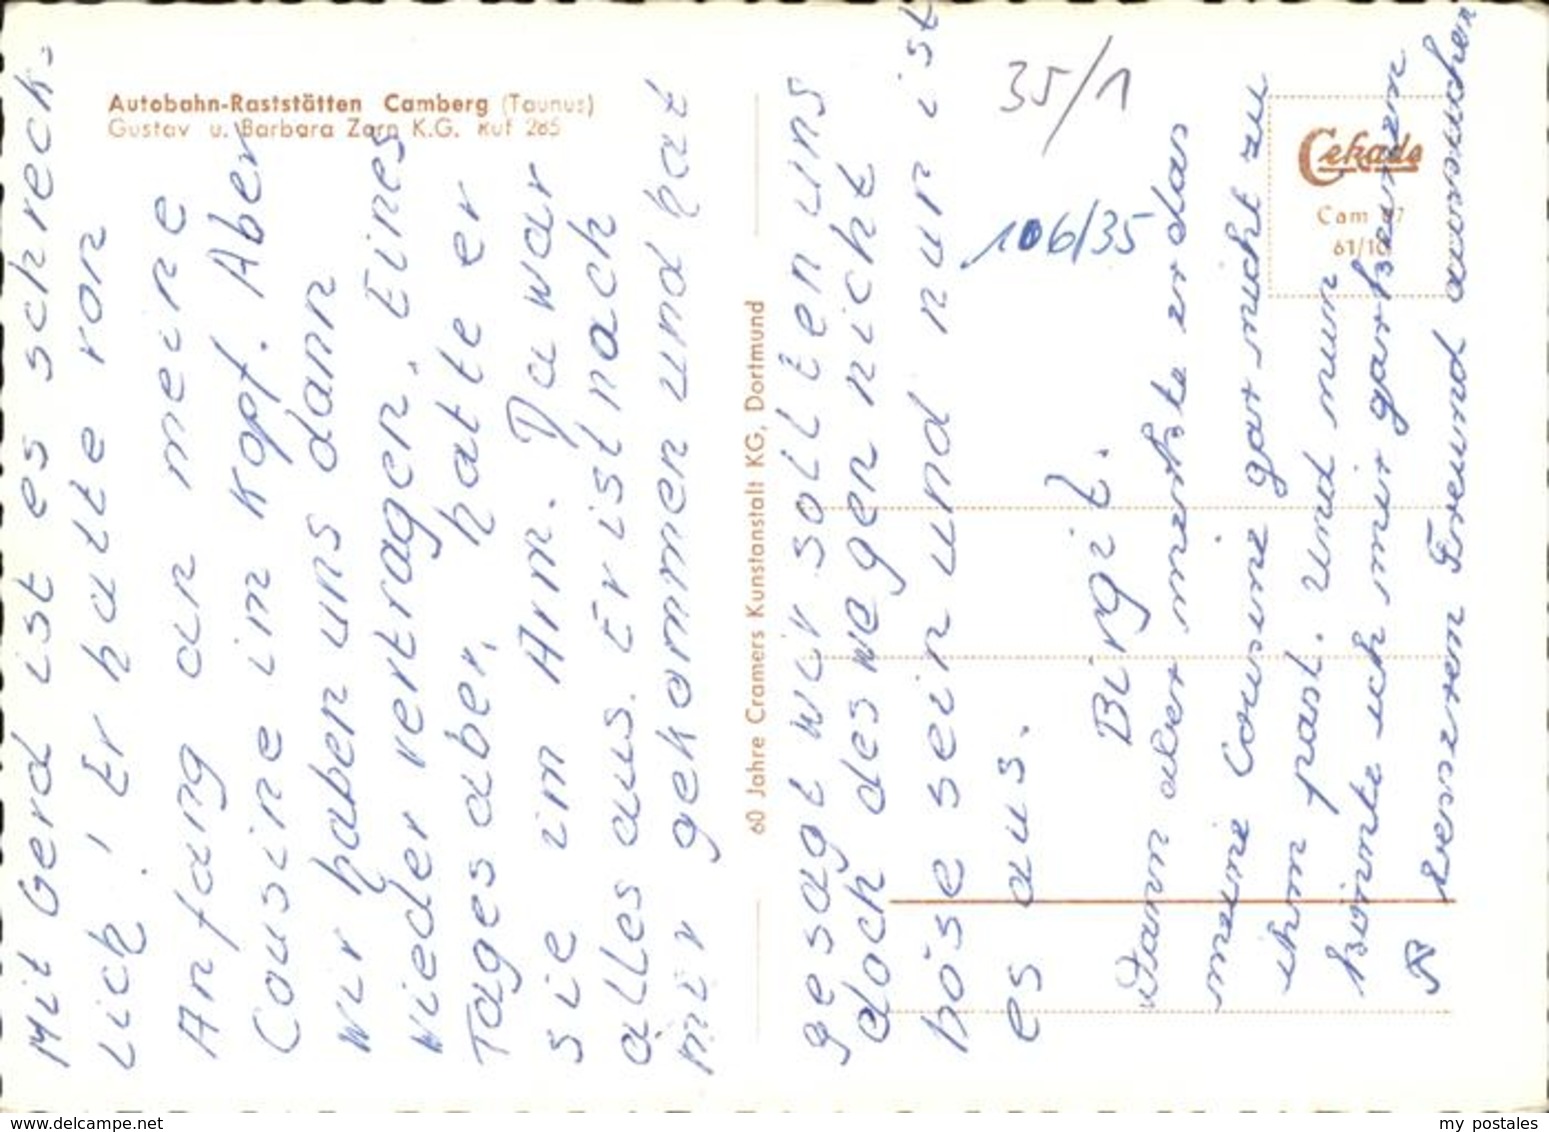 Autobahn-Raststätten Camberg (Taunus)
Gustav u. Barbara Zorn K.G. Ruf 285
Mit Gerd ist es schreck-
lich! Er hatte von
Anfang an meine
Cousine im Kopf. Aber
wir haben uns dann
wieder vertragen. Eines
Tages aber, hatte er
sie im Arm. Da war
alles aus. Er ist nach
mir gekommen und hat
60 Jahre Cramers Kunstanstalt KG, Dortmund
gesagt wir sollten uns
doch deswegen nicht
böse sein und nun ist
es aus.
Birgit.
Dann aber merkte er das
meine Cousine gar nicht zu
ihm past. Und nun
könnte ich mir gar keinen
besseren Freund aussuchen
35/1
106/35
Cekade
Cam
61/10
www.delcampe.net
my postales